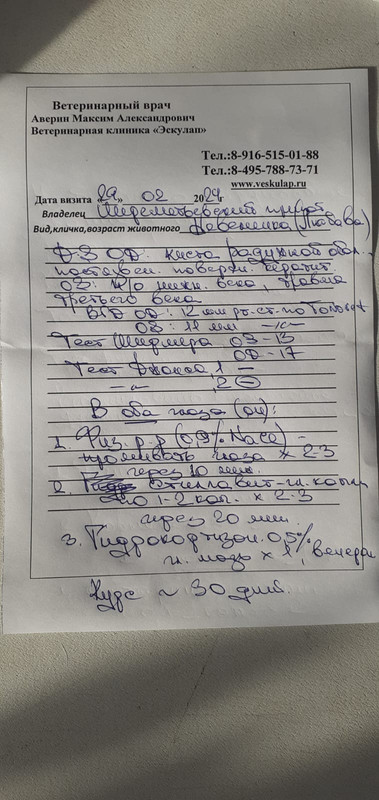 Ветеринарный врач
Аверин Максим Александрович
Ветеринарная клиника «Эскулап»
Тел.:8-916-515-01-88
Тел.:8-495-788-73-71
www.veskulap.ru
Дата визита «29» 02 2024г
Владелец Шереметьевский приют
Вид,кличка,возраст животного
D.S OD: киста радужной обол.
поствен. поверхн. кератит
OS: н/о нижн. века, травма
третьего века
ВГД OD: 12 мм рт.ст. по
OS: 11 мм —"—
Тест Ширмера OS-13
OD-17
Тест Джонса 1 —
—"— 2 ⊖
В оба глаза (ou):
1. Физ. р-р (0,9% NaCl) -
промывать глаза х 2-3
через 10 мин.
2. Стиллавит-гл. капли
по 1-2 кап. х 2-3
через 20 мин.
3. Гидрокортизон 0,5%
гл. мазь х 1, вечером
Курс ~ 30 дней.